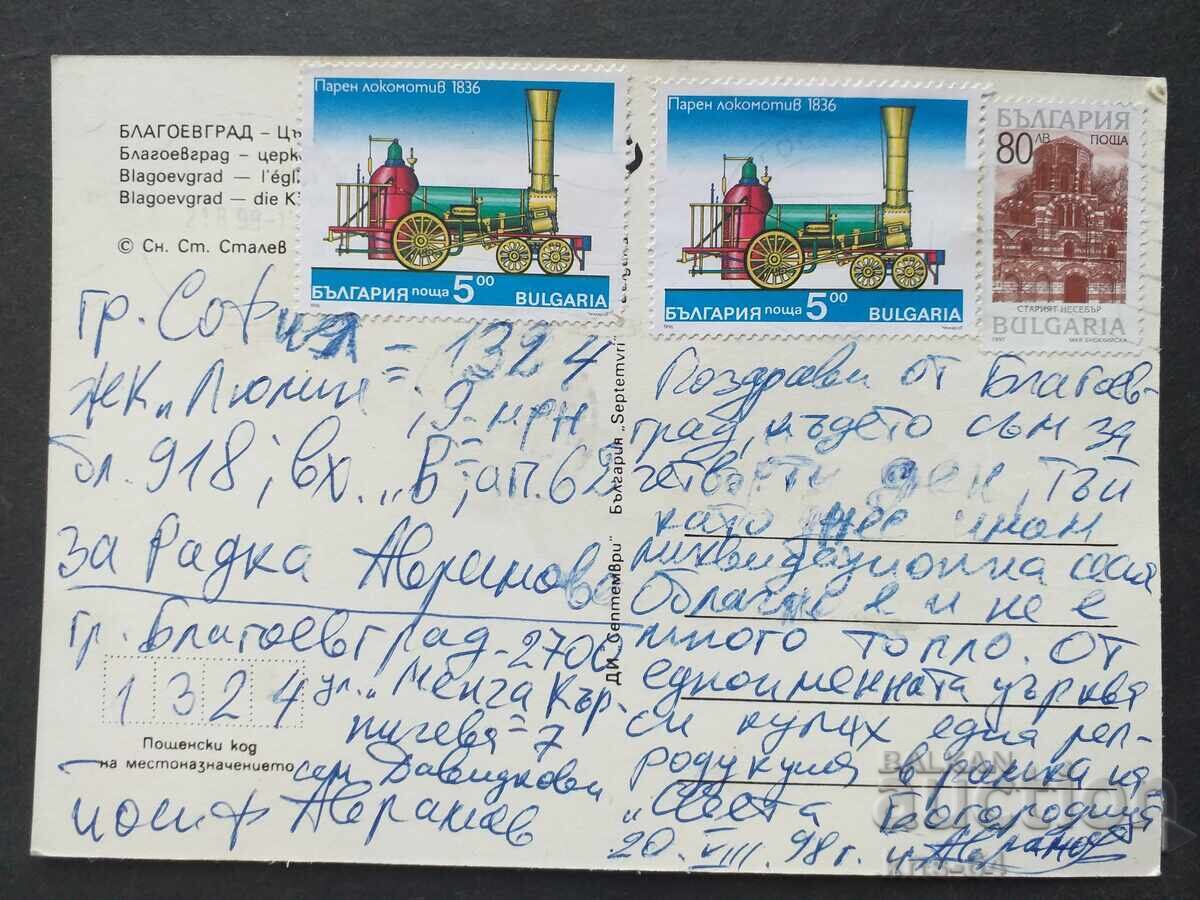 Парен локомотив 1836
БЪЛГАРИЯ поща 5.00 BULGARIA
Парен локомотив 1836
БЪЛГАРИЯ поща 5.00 BULGARIA
БЪЛГАРИЯ
80 ЛВ ПОЩА
СТАРИЯТ НЕСЕБЪР
BULGARIA
1997
БЛАГОЕВГРАД – Цъ
Благоевград – церк
Blagoevgrad — l'égl
Blagoevgrad — die K
© Сн. Ст. Сталев
гр. София = 1324
жк „Люлин = , 9- мрн
бл. 918 ; вх. „В", ап. 62
за Радка Аврамова
гр. Благоевград - 2700
ул. „Менча Кър-
ничева = 7
сем. Давидкови
Йосиф Аврамов
1324
Пощенски код
на местоназначението
ДИ „Септември" България „Septemvri"
Поздрави от Благоев-
град, където съм за
четвърти ден, тъй
като днес имам
ликвидационна сесия
Облачно е и не е
много топло. От
едноименната църква
си купих една реп-
родукция в рамка на
„Света Богородица
20. VIII. 98 г. Й. Аврамов
BALKAN
auction